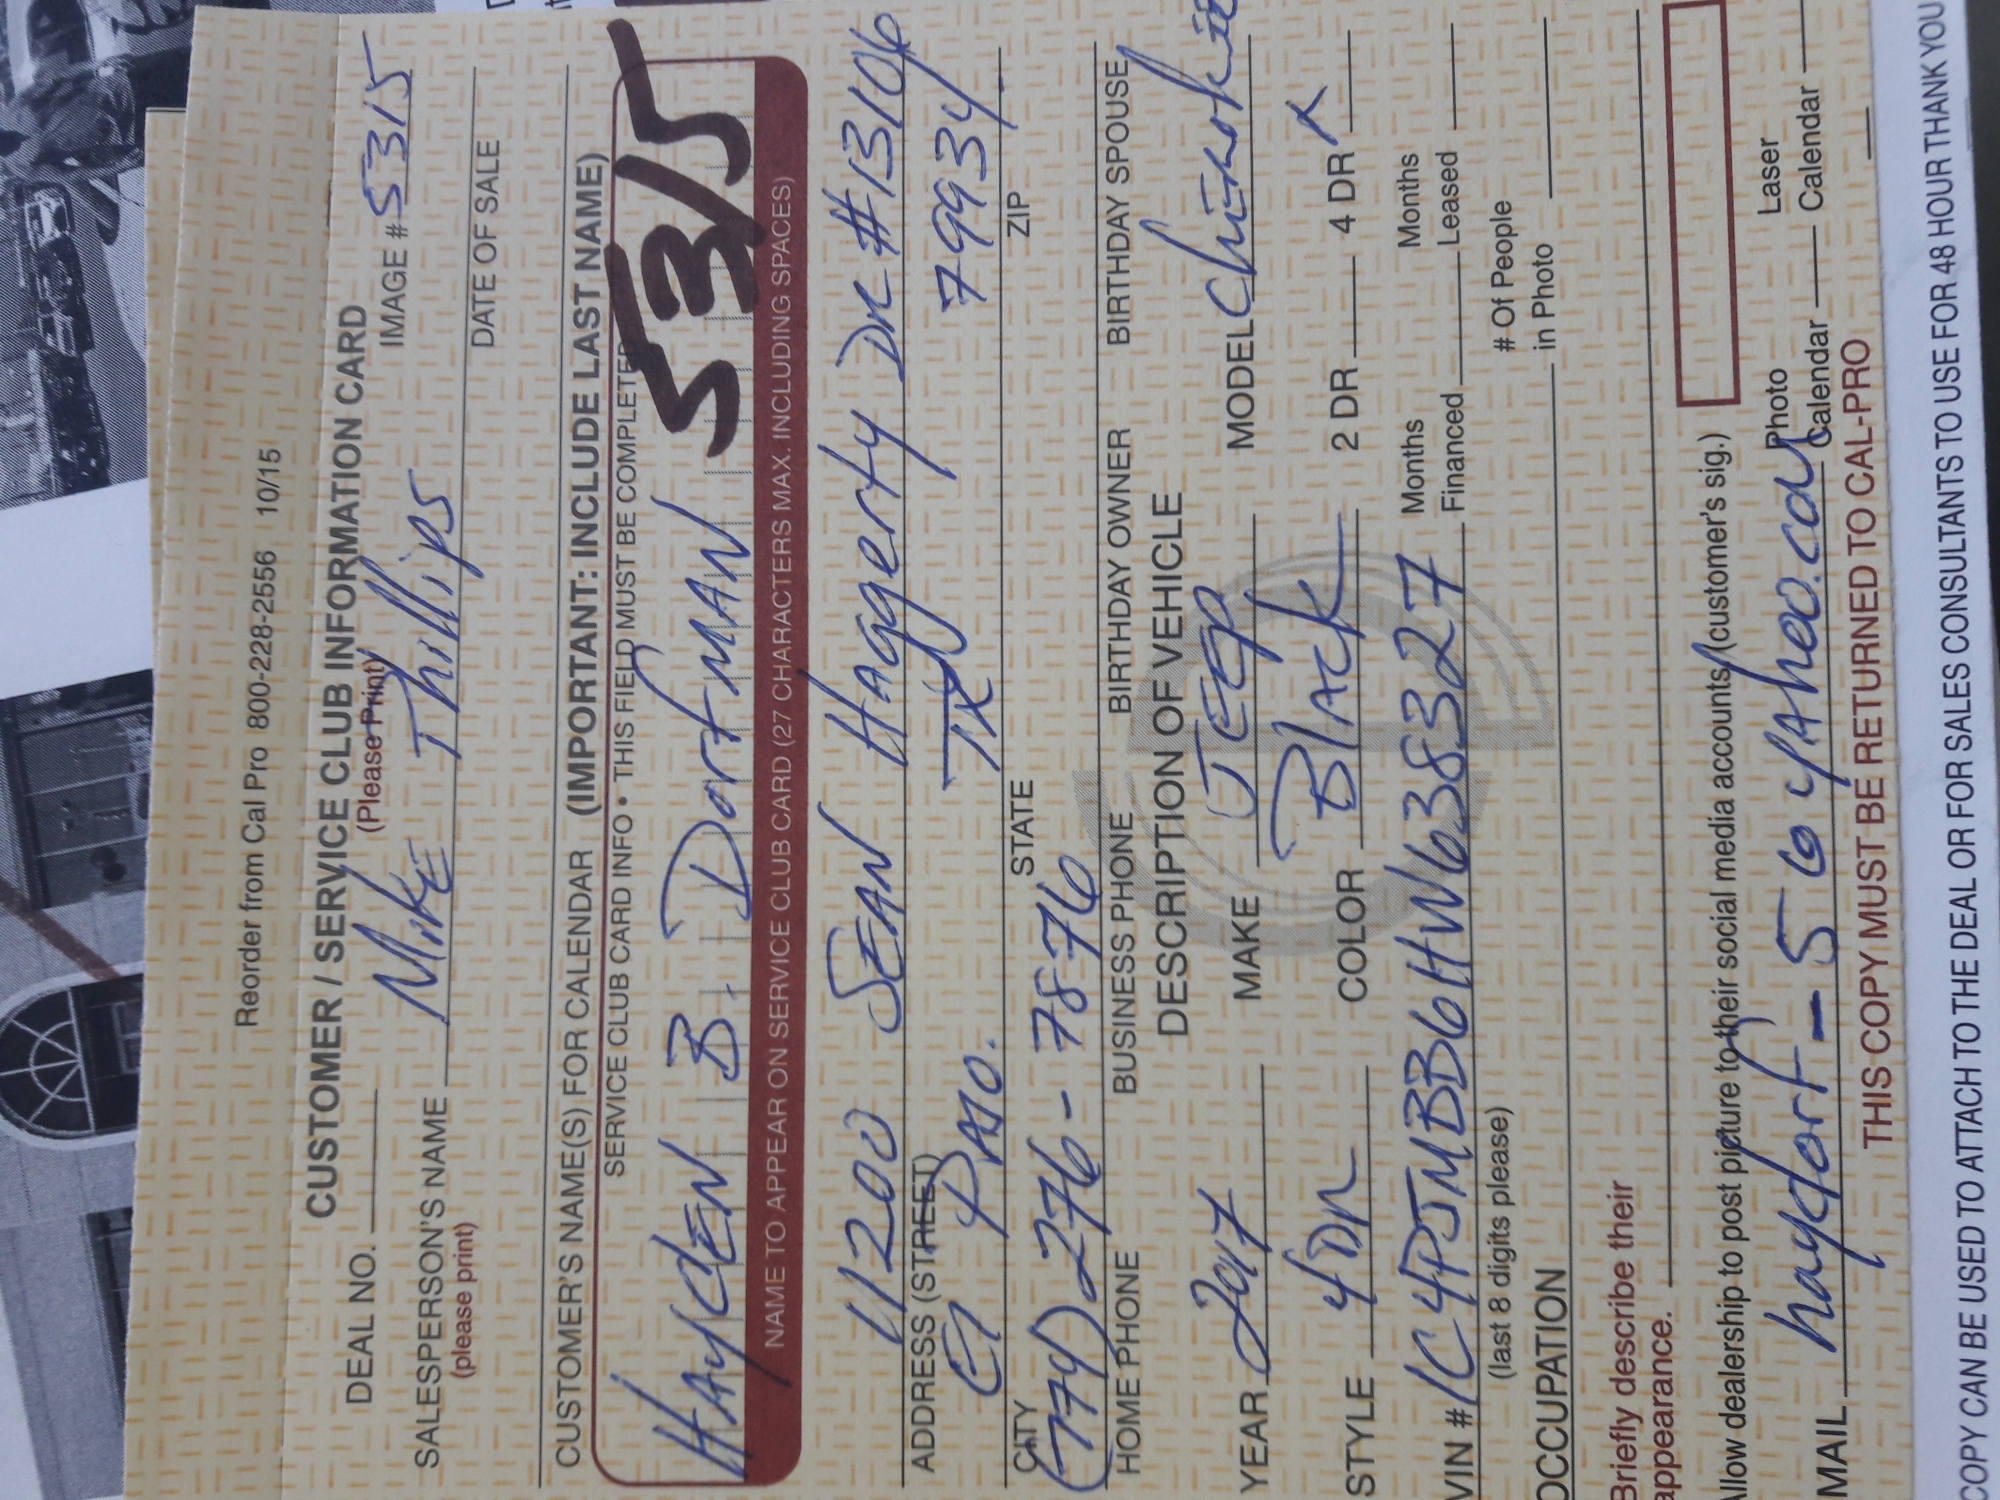 Reorder from Cal Pro 800-228-2556 10/15
CUSTOMER / SERVICE CLUB INFORMATION CARD
DEAL NO. (Please Print) IMAGE # 5315
SALESPERSON'S NAME Mike Phillips DATE OF SALE
(please print)
CUSTOMER'S NAME(S) FOR CALENDAR (IMPORTANT: INCLUDE LAST NAME)
SERVICE CLUB CARD INFO • THIS FIELD MUST BE COMPLETED
HAyden B. Dortman 5315
NAME TO APPEAR ON SERVICE CLUB CARD (27 CHARACTERS MAX. INCLUDING SPACES)
11200 SEAN HAggerty Dr #13106
ADDRESS (STREET)
El PASO. TX 79934
CITY STATE ZIP
(774) 276-7876
HOME PHONE BUSINESS PHONE BIRTHDAY OWNER BIRTHDAY SPOUSE
DESCRIPTION OF VEHICLE
YEAR 2017 MAKE JEEP MODEL
STYLE 4DR COLOR BlAck 2 DR 4 DR X
VIN # 1C4PJMBB6HW638327 Months Financed Months Leased
(last 8 digits please)
OCCUPATION # Of People in Photo
Briefly describe their
appearance.
Allow dealership to post picture to their social media accounts (customer's sig.)
MAIL Photo Calendar Laser Calendar
THIS COPY MUST BE RETURNED TO CAL-PRO
COPY CAN BE USED TO ATTACH TO THE DEAL OR FOR SALES CONSULTANTS TO USE FOR 48 HOUR THANK YOU